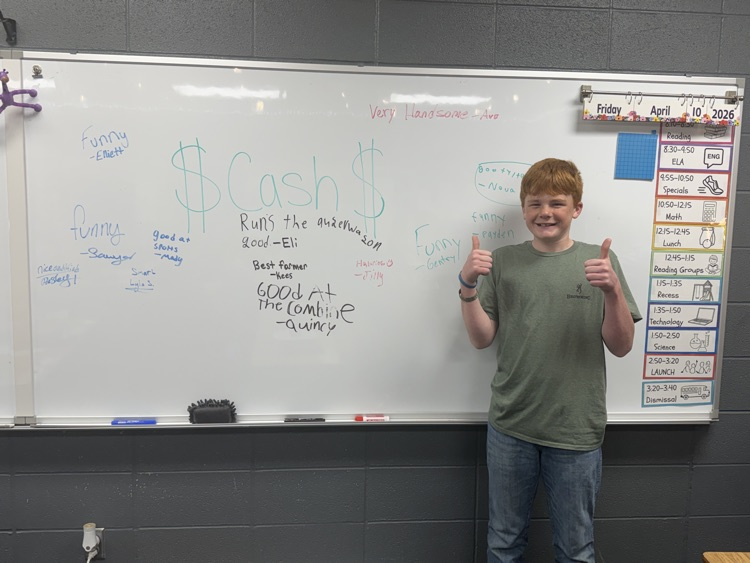 Very Handsome - Ava
Funny
- Elliett
$ Cash $
- Nova
Funny
Funny
- Sawyer
good at
sports
- Mady
Smart
Runs the
good - Eli
Funny
Best farmer
- Kees
- Tilly
Good At
The combine
- quincy
BROWNING
Friday April 10 2026
Reading
8:30-9:50
ELA
ENG
9:55-10:50
Specials
10:50-12:15
Math
12:15-12:45
Lunch
12:45-1:15
Reading Groups
1:15-1:35
Recess
1:35-1:50
Technology
1:50-2:50
Science
2:50-3:20
LAUNCH
3:20-3:40
Dismissal